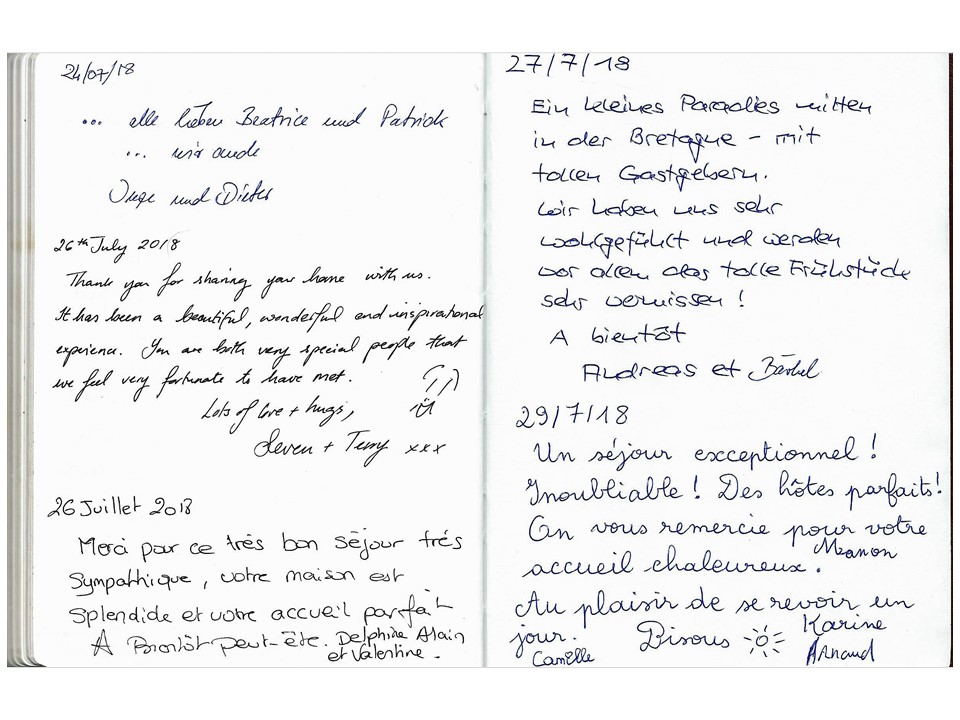 24/07/18
... alle lieben Beatrice und Patrick
... wir auch
und Dieter
26th July 2018
Thank you for sharing your home with us.
It has been a beautiful, wonderful and inspirational
experience. You are both very special people that
we feel very fortunate to have met.
Lots of love + hugs,
+ Terry xxx
26 Juillet 2018
Merci pour ce très bon séjour très
Sympathique, votre maison est
Splendide et votre accueil parfait
A Bientôt peut-ête. Delphine Alain
et Valentine.
27/7/18
Ein kleines Paradies mitten
in der Bretagne - mit
tollen Gastgebern.
Wir haben uns sehr
wohlgefühlt und werden
vor allen das tolle Frühstück
sehr vermissen!
A bientôt
Andreas et Bärbel
29/7/18
Un séjour exceptionnel!
Inoubliable! Des hôtes parfaits!
On vous remercie pour votre
accueil chaleureux. Manon
Au plaisir de se revoir un
jour. Bisous Karine
Camille Arnaud